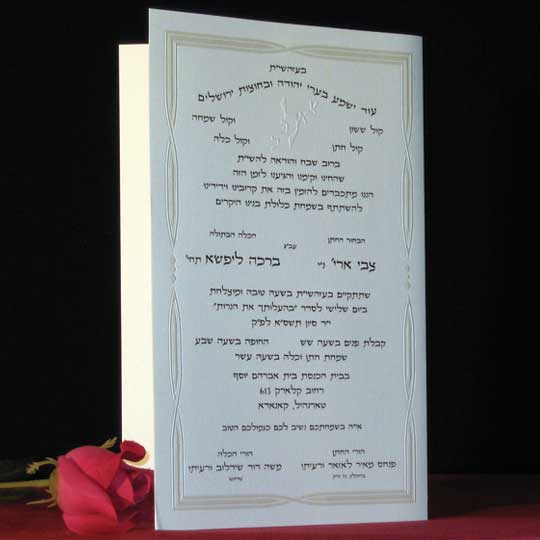 בעזהשי״ת
עוד ישמע בערי יהודה ובחוצות ירושלים
קול ששון וקול שמחה
קול חתן וקול כלה
ברוב שבח והודאה להשי״ת
שהחינו וקימנו והגיענו לזמן הזה
הננו מתכבדים להזמין בזה את קרובינו וידידינו
להשתתף בשמחת כלולת בנינו היקרים
הבחור החתן הכלה הבתולה
עב״ג
צבי ארי׳ נ״י ברכה ליפשא תחי׳
שתתקיים בעזהשי״ת בשעה טובה ומוצלחת
ביום שלישי לסדר ״בהעלותך את הנרות״
י״ד סיון תשס״א לפ״ק
קבלת פנים בשעה שש החופה בשעה שבע
שמחת חתן וכלה בשעה עשר
בבית הכנסת בית אברהם יוסף
רחוב קלארק 613
טארנהיל, קאנאדא
ארה בשמחתכם נשיב לכם כגמולכם הטוב
הורי החתן הורי הכלה
פנחס מאיר לאזאר ורעיתו משה דוד שירלוב ורעיתו